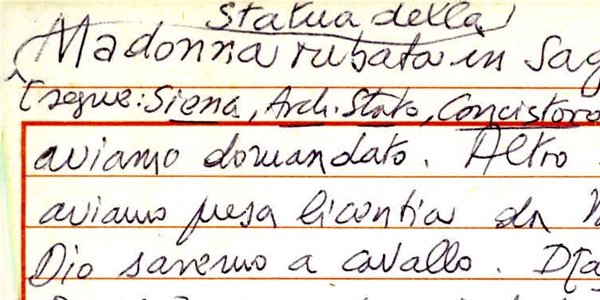 Statua della
Madonna rubata in Sag
(segue: Siena, Arch. Stato, Concistoro
aviamo domandato. Altro
aviamo presa licentia da
Dio saremo a cavallo.